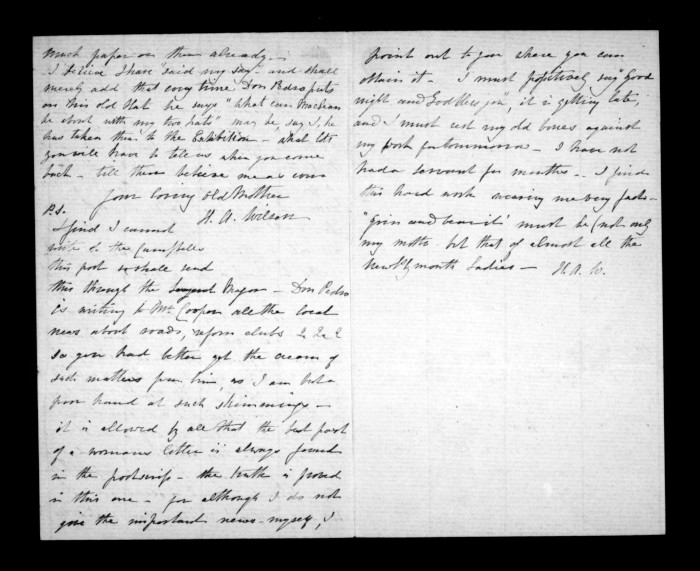 much paper on them already —
I believe I have "said my say" and shall
merely add that every time Don Pedro puts
on his old Hat he says "What can Maclean
be about with my two hats" may be, say I, he
has taken them to the Exhibition — what lots
you will have to tell us when you come
back — till then believe me as ever
Your loving old Mother
H. A. Wilson
P.S.
I find I cannot
write to the Campbells
this post so shall send
this through the Sergeant Major — Don Pedro
is writing to Mr Cooper all the local
news about roads, reform clubs &c &c
so you had better get the cream of
such matters from him, as I am but a
poor hand at such skimmings —
it is allowed by all that the best part
of a womans letter is always found
in the postscrip — the truth is proved
in this one — for although I do not
give the important news myself, I
point out to you where you can
obtain it — I must positively say "Good
night and God bless you", it is getting late,
and I must rest my old bones against
my work for tomorrow — I have not
had a servant for months — I find
this hard work wearing me very fast —
"Grin and bear it" must be (not only
my motto but that of almost all the
New Plymouth Ladies — H. A. W.